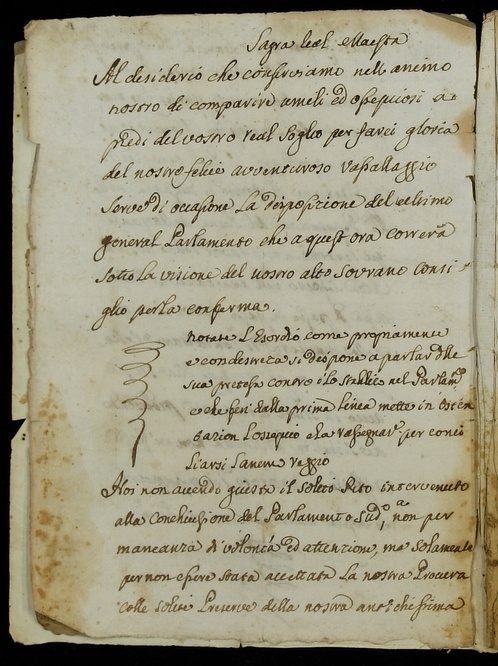 Sagra Real Maesta
Al desiderio che conserviamo nell animo
nostro di comparire umili ed ossequiosi a
piedi del vostro real Soglio per farci gloria
del nostro felice avventuroso Vassallaggio
Serve di occasione La disposizione del ultimo
general Parlamento che a quest ora correrà
sotto La visione del vostro alto Sovrano Consi-
glio per la conferma.
notate L'Esordio come propriamente
e con destrezza si dispone a parlar delle
sua pretesa contro lo nel Parlamto
e che fin dalla prima Linea mette in osten
tazion L'ossequio e la per conci
liarsi
Noi non avendo giusta il solito Rito intervenuto
alla Conchiusione del Parlamento Sudo, non per
mancanza di volontà ed attenzione, ma solamente
per non essere stata accettata La nostra Procura
colle solite Riserve della nostra antichissima